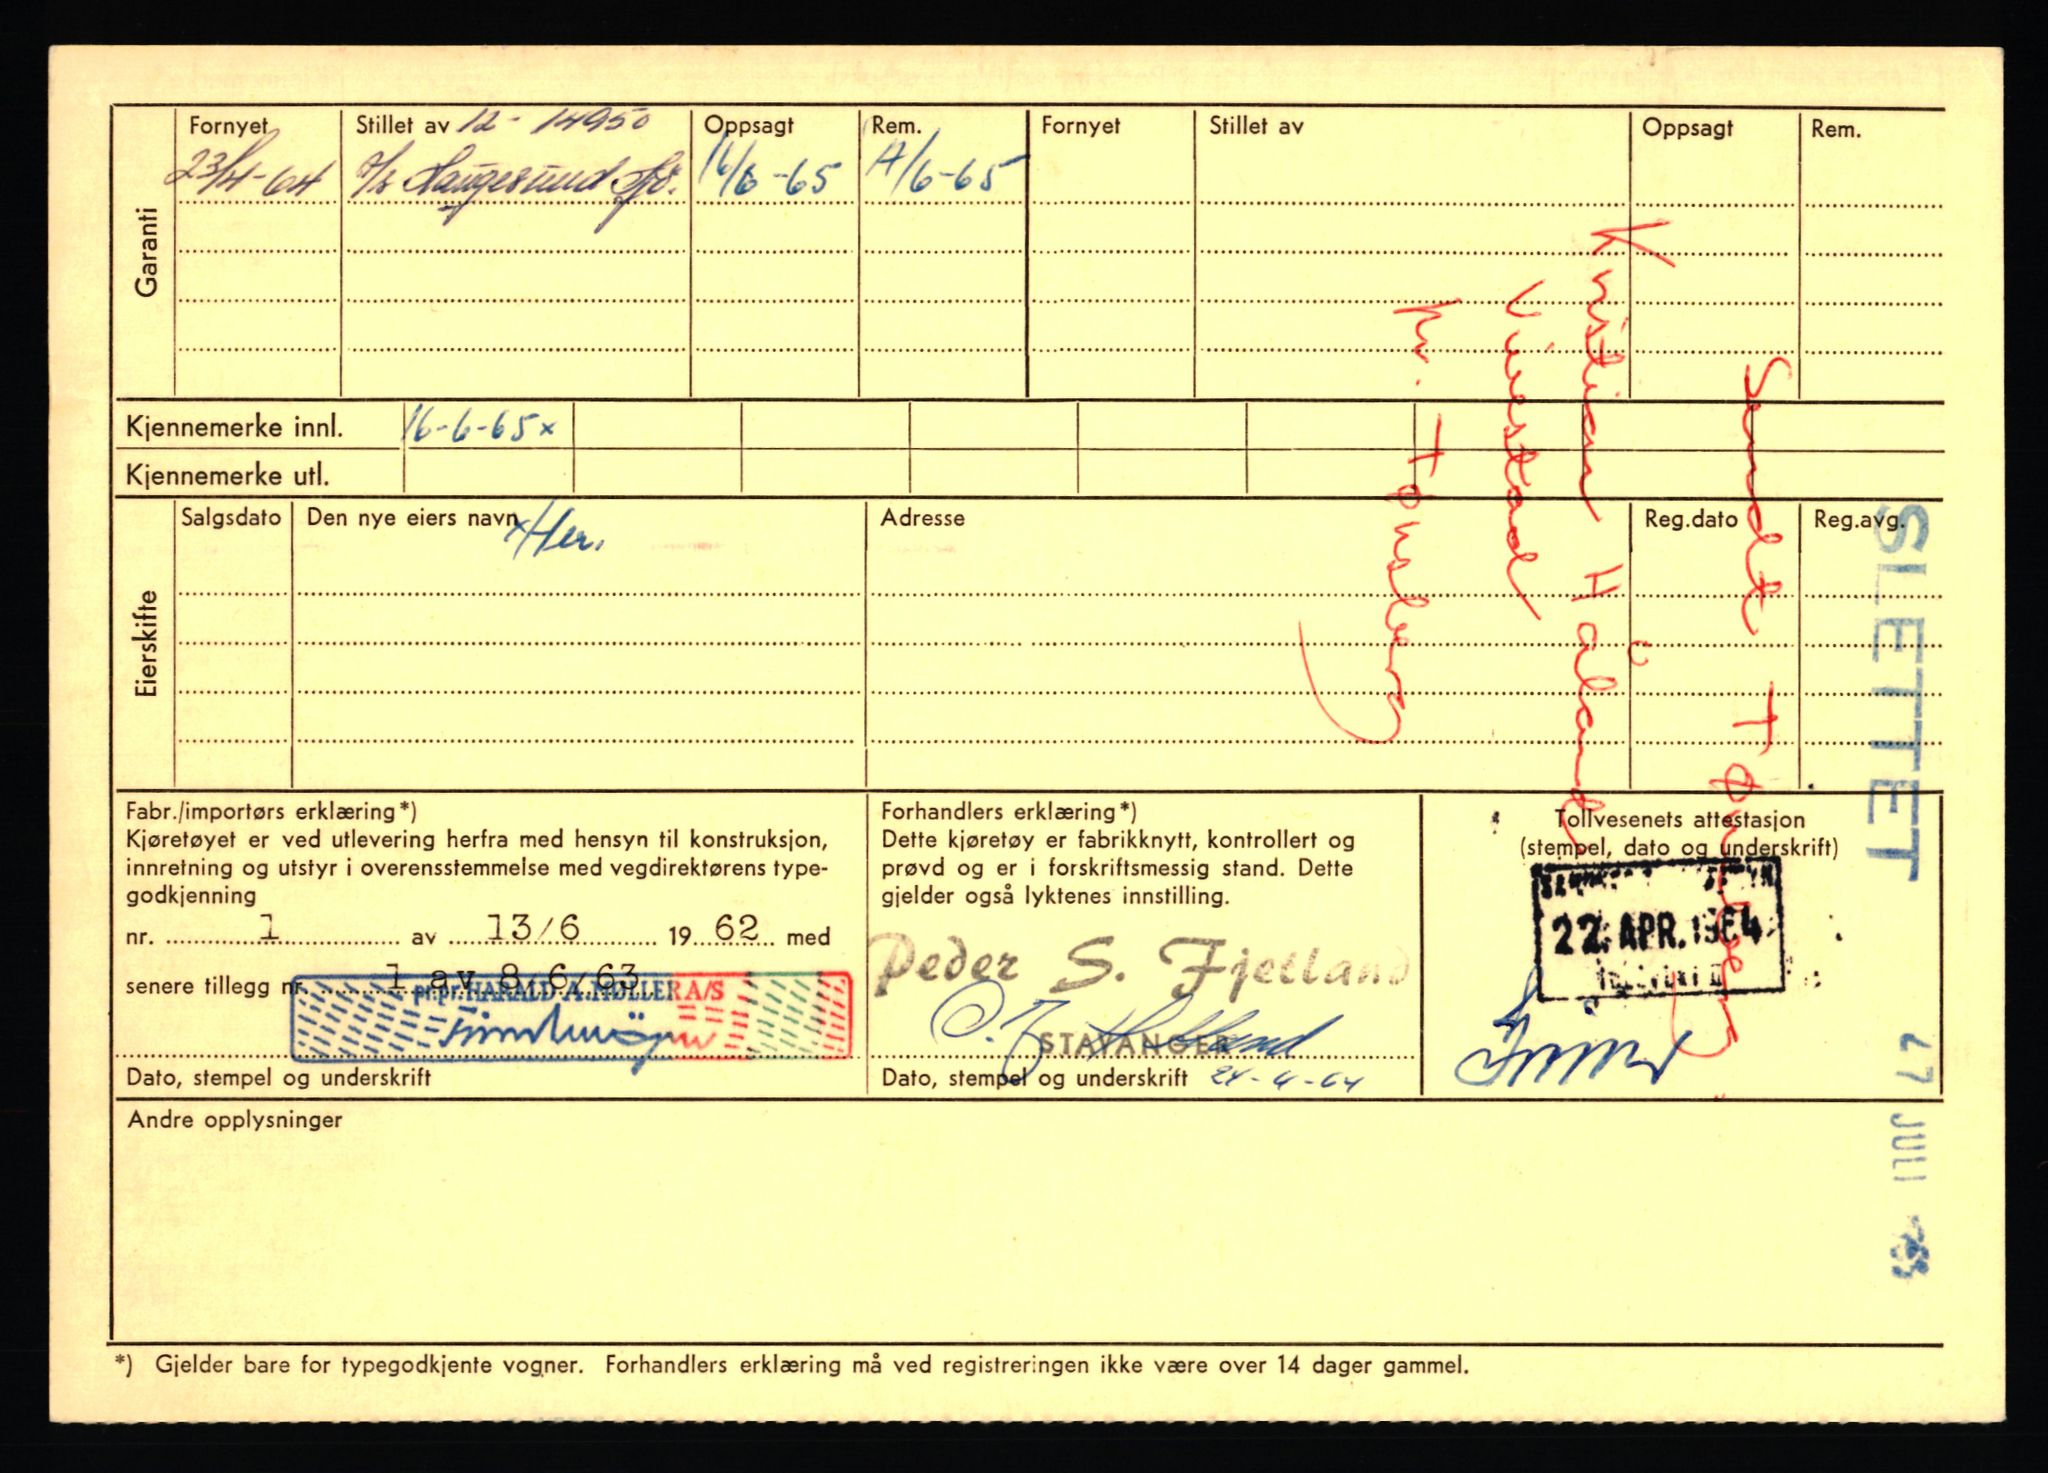 Garanti
Fornyet Stillet av 12-14950 Oppsagt Rem. Fornyet Stillet av Oppsagt Rem.
23/4-64 A/s Haugesund 16/6-65 A/6-65
Kjennemerke innl. 16-6-65x
Kjennemerke utl.
Eierskifte
Salgsdato Den nye eiers navn Adresse Reg.dato Reg.avg.
xHer.
Fabr./importørs erklæring*)
Kjøretøyet er ved utlevering herfra med hensyn til konstruksjon,
innretning og utstyr i overensstemmelse med vegdirektørens type-
godkjenning
nr. 1 av 13/6 1962 med
senere tillegg nr. 1 av 8/6/63
pr.pr. HARALD A. MØLLER A/S
Dato, stempel og underskrift
Forhandlers erklæring*)
Dette kjøretøy er fabrikknytt, kontrollert og
prøvd og er i forskriftsmessig stand. Dette
gjelder også lyktenes innstilling.
Peder S. Fjelland
STAVANGER
Dato, stempel og underskrift 24-4-64
Tollvesenets attestasjon
(stempel, dato og underskrift)
22. APR. 1964
Andre opplysninger
*) Gjelder bare for typegodkjente vogner. Forhandlers erklæring må ved registreringen ikke være over 14 dager gammel.
Sendt Tønsberg
Kristian Håland
pr. Tønsberg
SLETTET
JULI